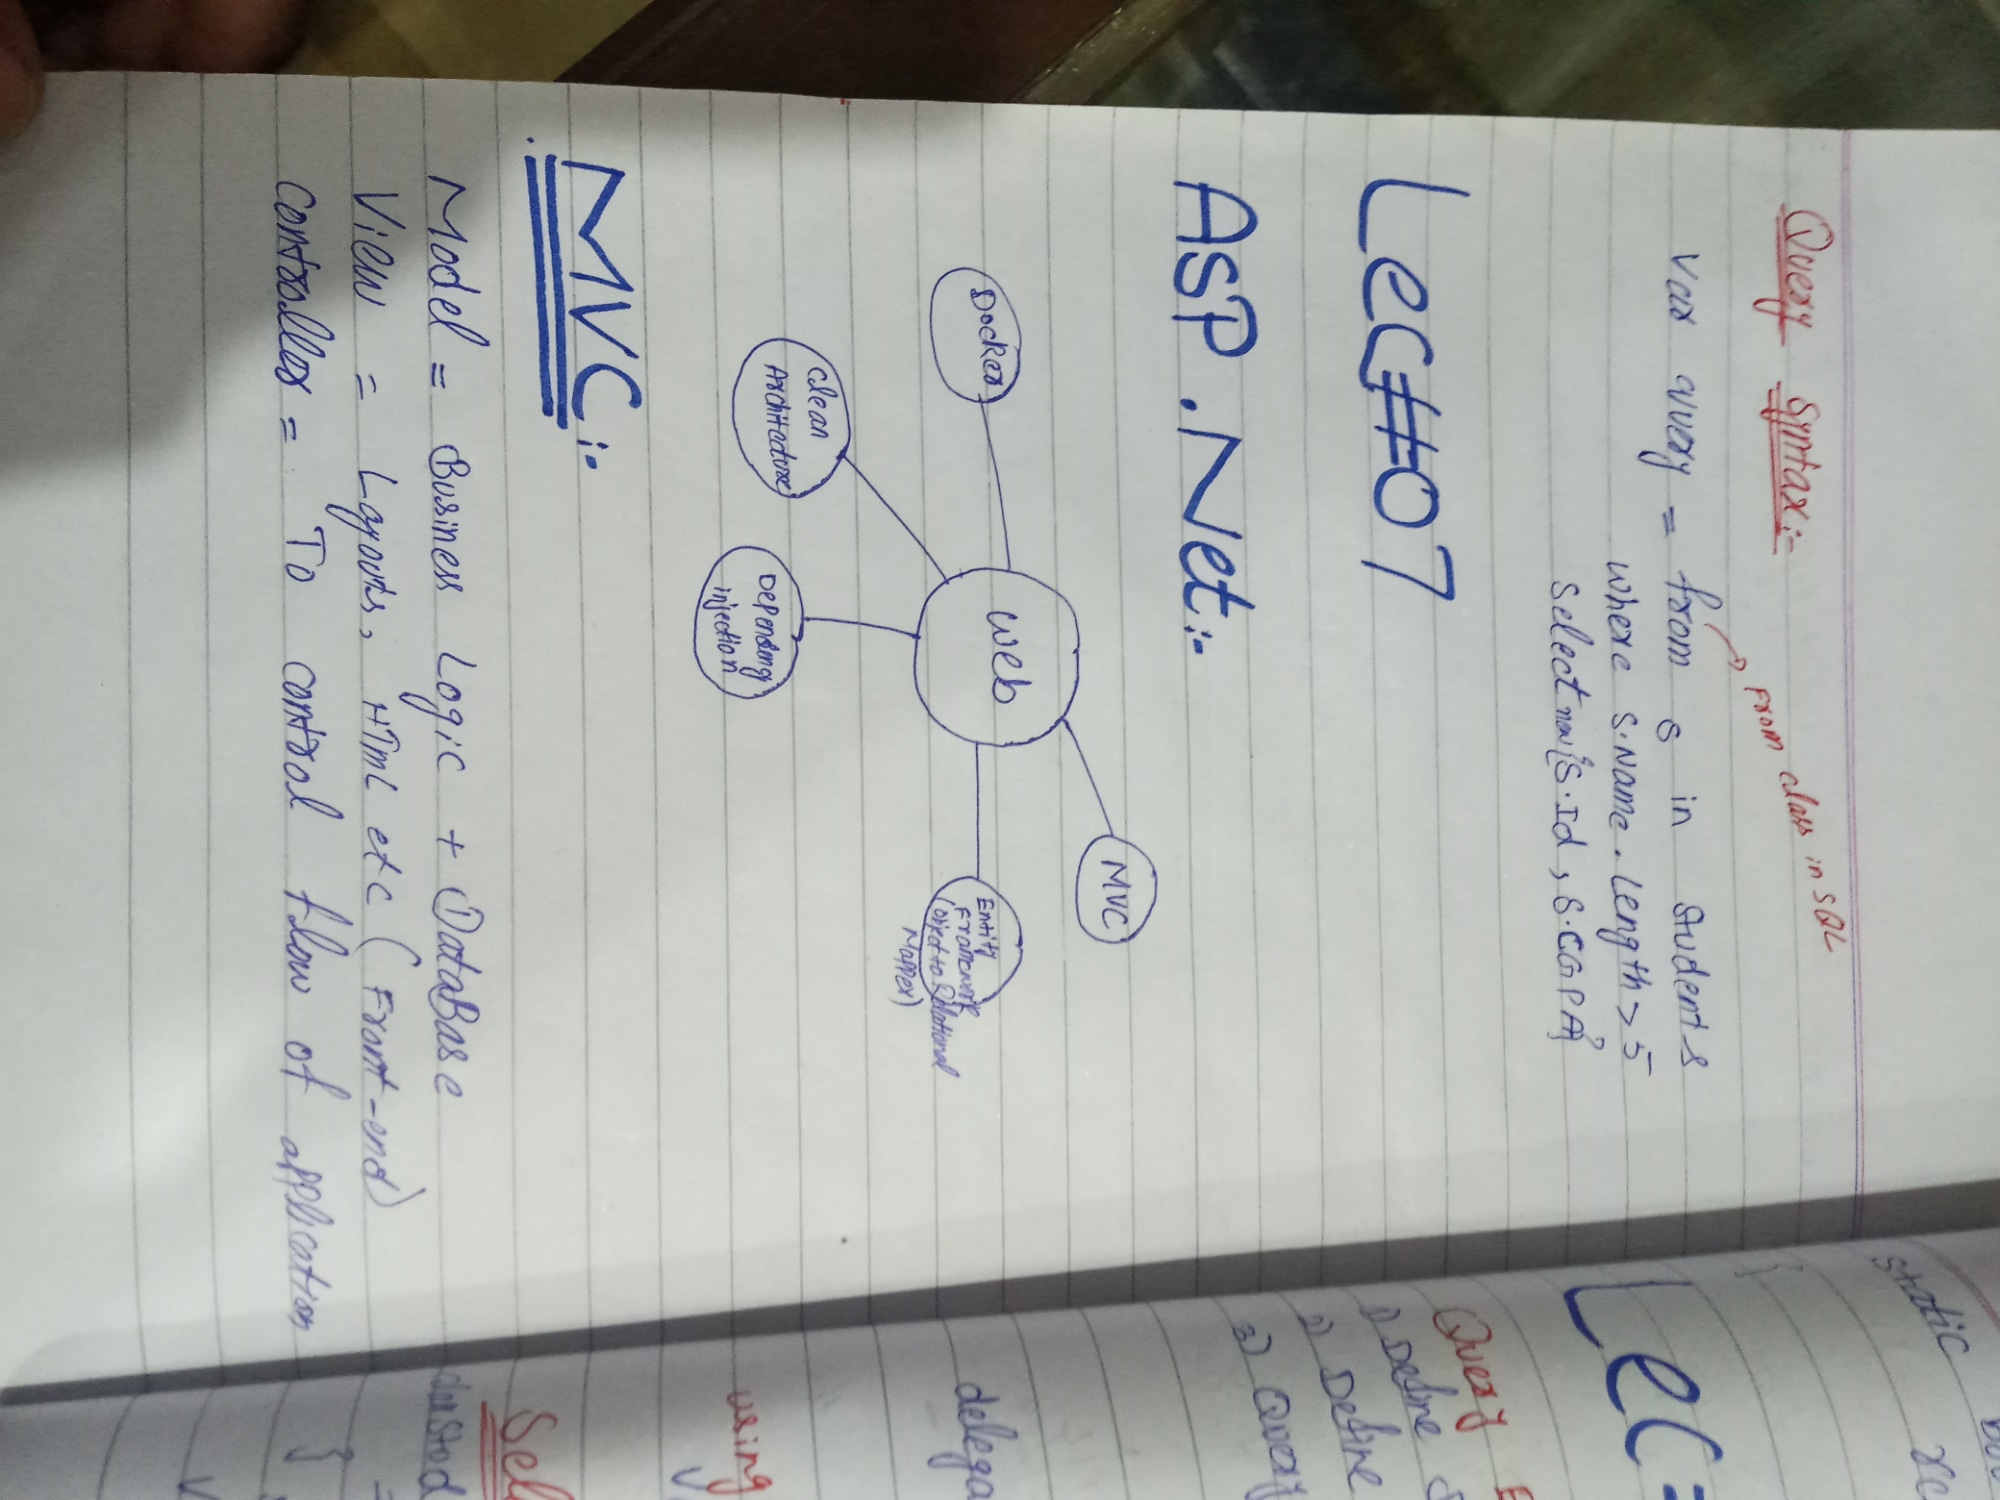 Query Syntax:-
From class in SQL
Var query = from s in Students
where S.Name.Length > 5
Select new {S.Id, S.CGPA}
Lec#07
ASP.Net:-
MVC
web
Docker
Entity
Framework
(Object to Relational
Mapper)
Clean
Architecture
Dependency
injection
MVC:-
Model = Business Logic + DataBase
View = Layouts, HTML etc (Front-end)
Controller = To control flow of application
static
Lec
Query
1) Define
2) Define
3) Query
using